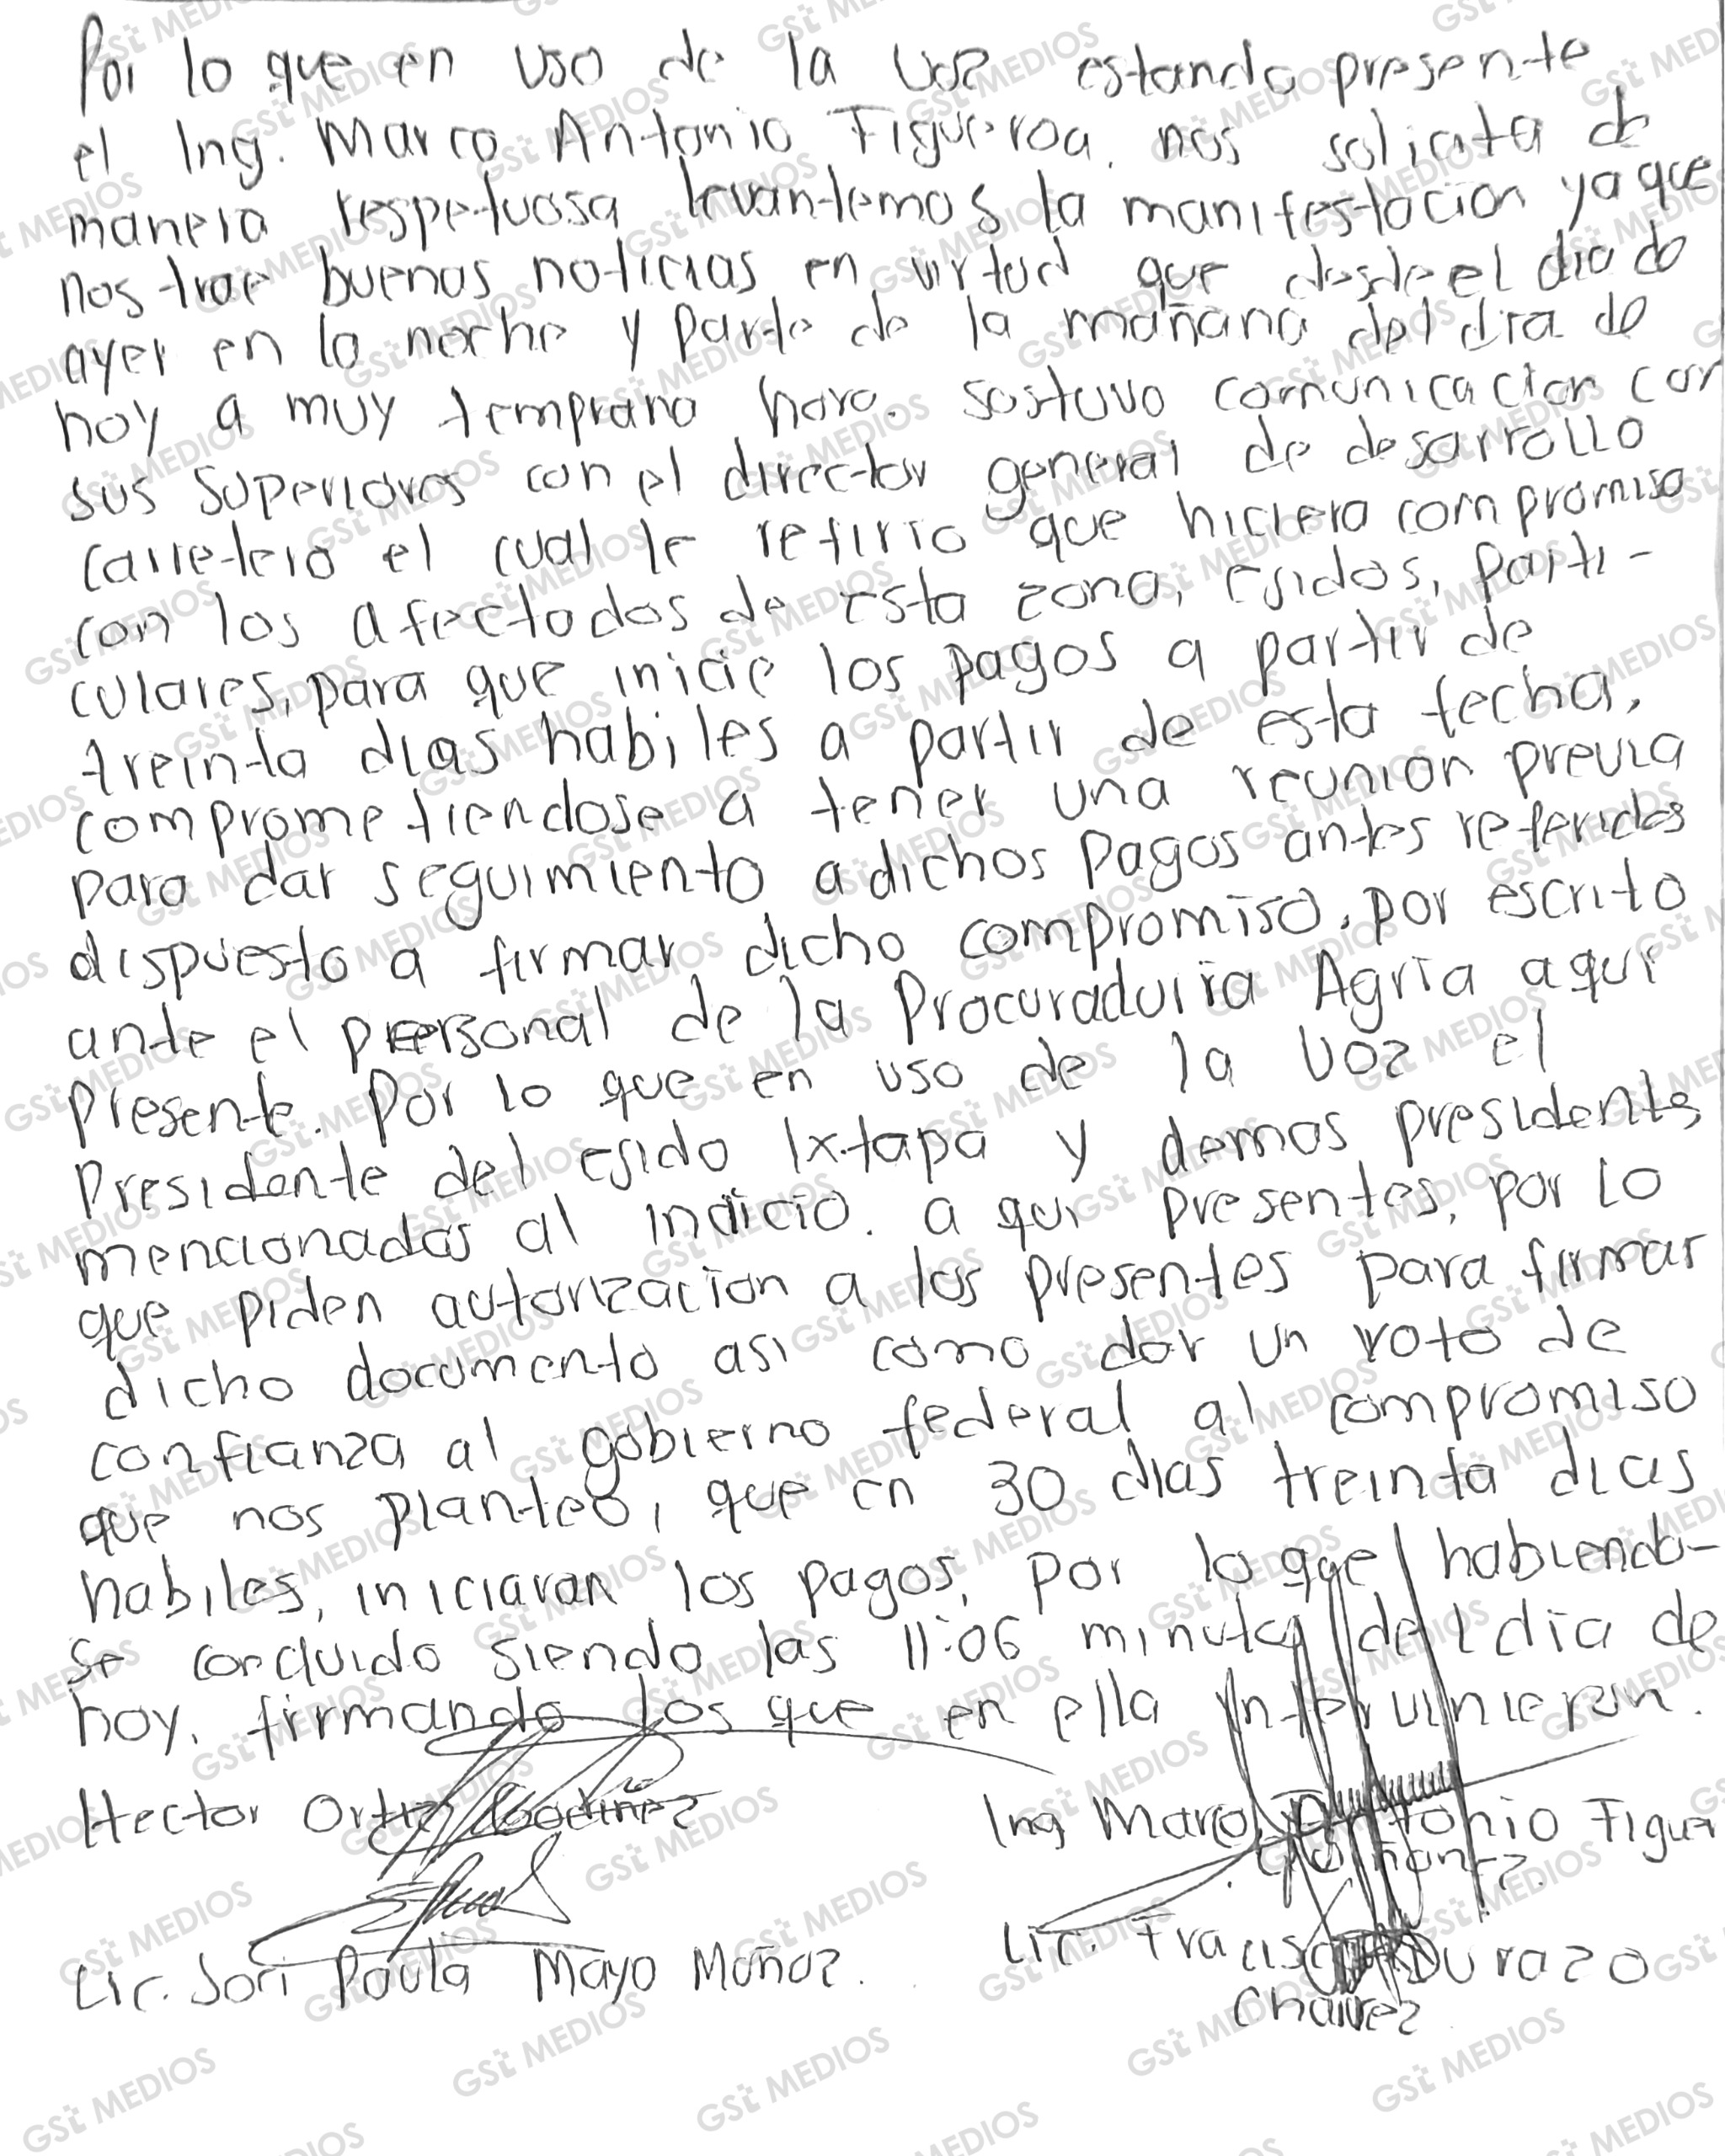 Por lo que en uso de la voz estando presente
el Ing. Marco Antonio Figueroa. nos solicita de
manera respetuosa levantemos la manifestacion ya que
nos trae buenas noticias en virtud que desde el dia de
ayer en la noche y parte de la mañana del dia de
hoy a muy temprana hora. sostuvo comunicacion con
sus superiores con el director general de desarrollo
carretero el cual le refirio que hiciera compromiso
con los afectados de esta zona, ejidos, parti-
culares, para que inicie los pagos a partir de
treinta dias habiles a partir de esta fecha,
comprometiendose a tener una reunion previa
para dar seguimiento a dichos pagos antes referidos
dispuesto a firmar dicho compromiso, por escrito
ante el personal de la Procuraduria Agria aqui
presente. Por lo que en uso de la voz el
Presidente del ejido Ixtapa y demas presidentes
mencionados al indicio. a qui presentes, por lo
que piden autorizacion a los presentes para firmar
dicho documento asi como dar un voto de
confianza al gobierno federal al compromiso
que nos planteo, que en 30 dias treinta dias
habiles, iniciaran los pagos, por lo que habiendo-
se concluido siendo las 11:06 minutos del dia de
hoy, firmando los que en ella intervinieron.
Hector Ortiz Godinez
Ing Marco Antonio Figue
Lic. Jori Paula Mayo Muñoz.
Lic. Fracisco Durazo
Chavez
GSt MEDIOS